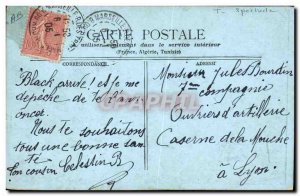 T - Spectacle
CARTE POSTALE
à utiliser seulement dans le service intérieur
(France, Algérie, Tunisie)
CORRESPONDANCE
ADRESSE
Monsieur Jules Bourdin
7me compagnie
Ouvriers d'artillerie
Caserne de la Mouche
à Lyon
Black arrive! et je me
dépêche de te l'an
oncer.
Nous te souhaitons
tous une bonne san
té
Ton cousin Celestin B